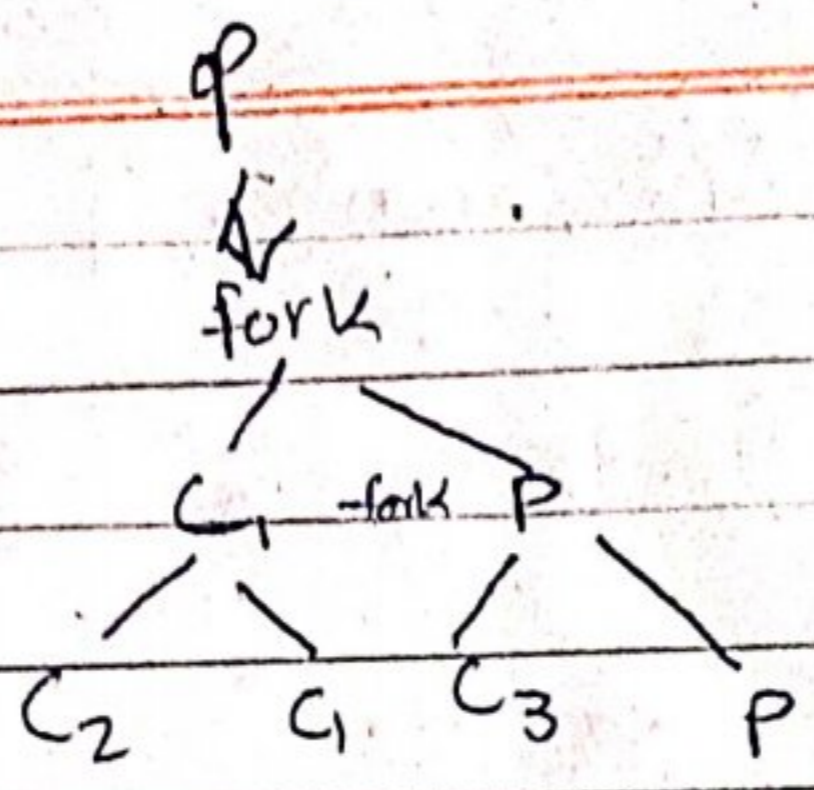 P
fork
C1 fork P
C2 C1 C3 P